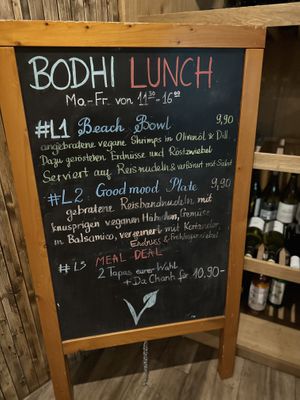 BODHI LUNCH
Ma-Fr. von 11:30-16:00
#L1 Beach Bowl 9,90
angebratene vegane Shrimps in Olivenöl & Dill
Dazu gerösteten Erdnüsse und Röstzwiebel
Serviert auf Reisnudeln & verfeinert mit Salat
#L2 Goodmood Plate 9,90
gebratene Reisbandnudeln mit
knusprigen veganen Hähnchen, Gemüse
in Balsamico, verfeinert mit Koriander,
Erdnuss & Frühlingszwiebel
#L3 MEAL DEAL
2 Tapas eurer Wahl
+ Da Chanh für 10,90-